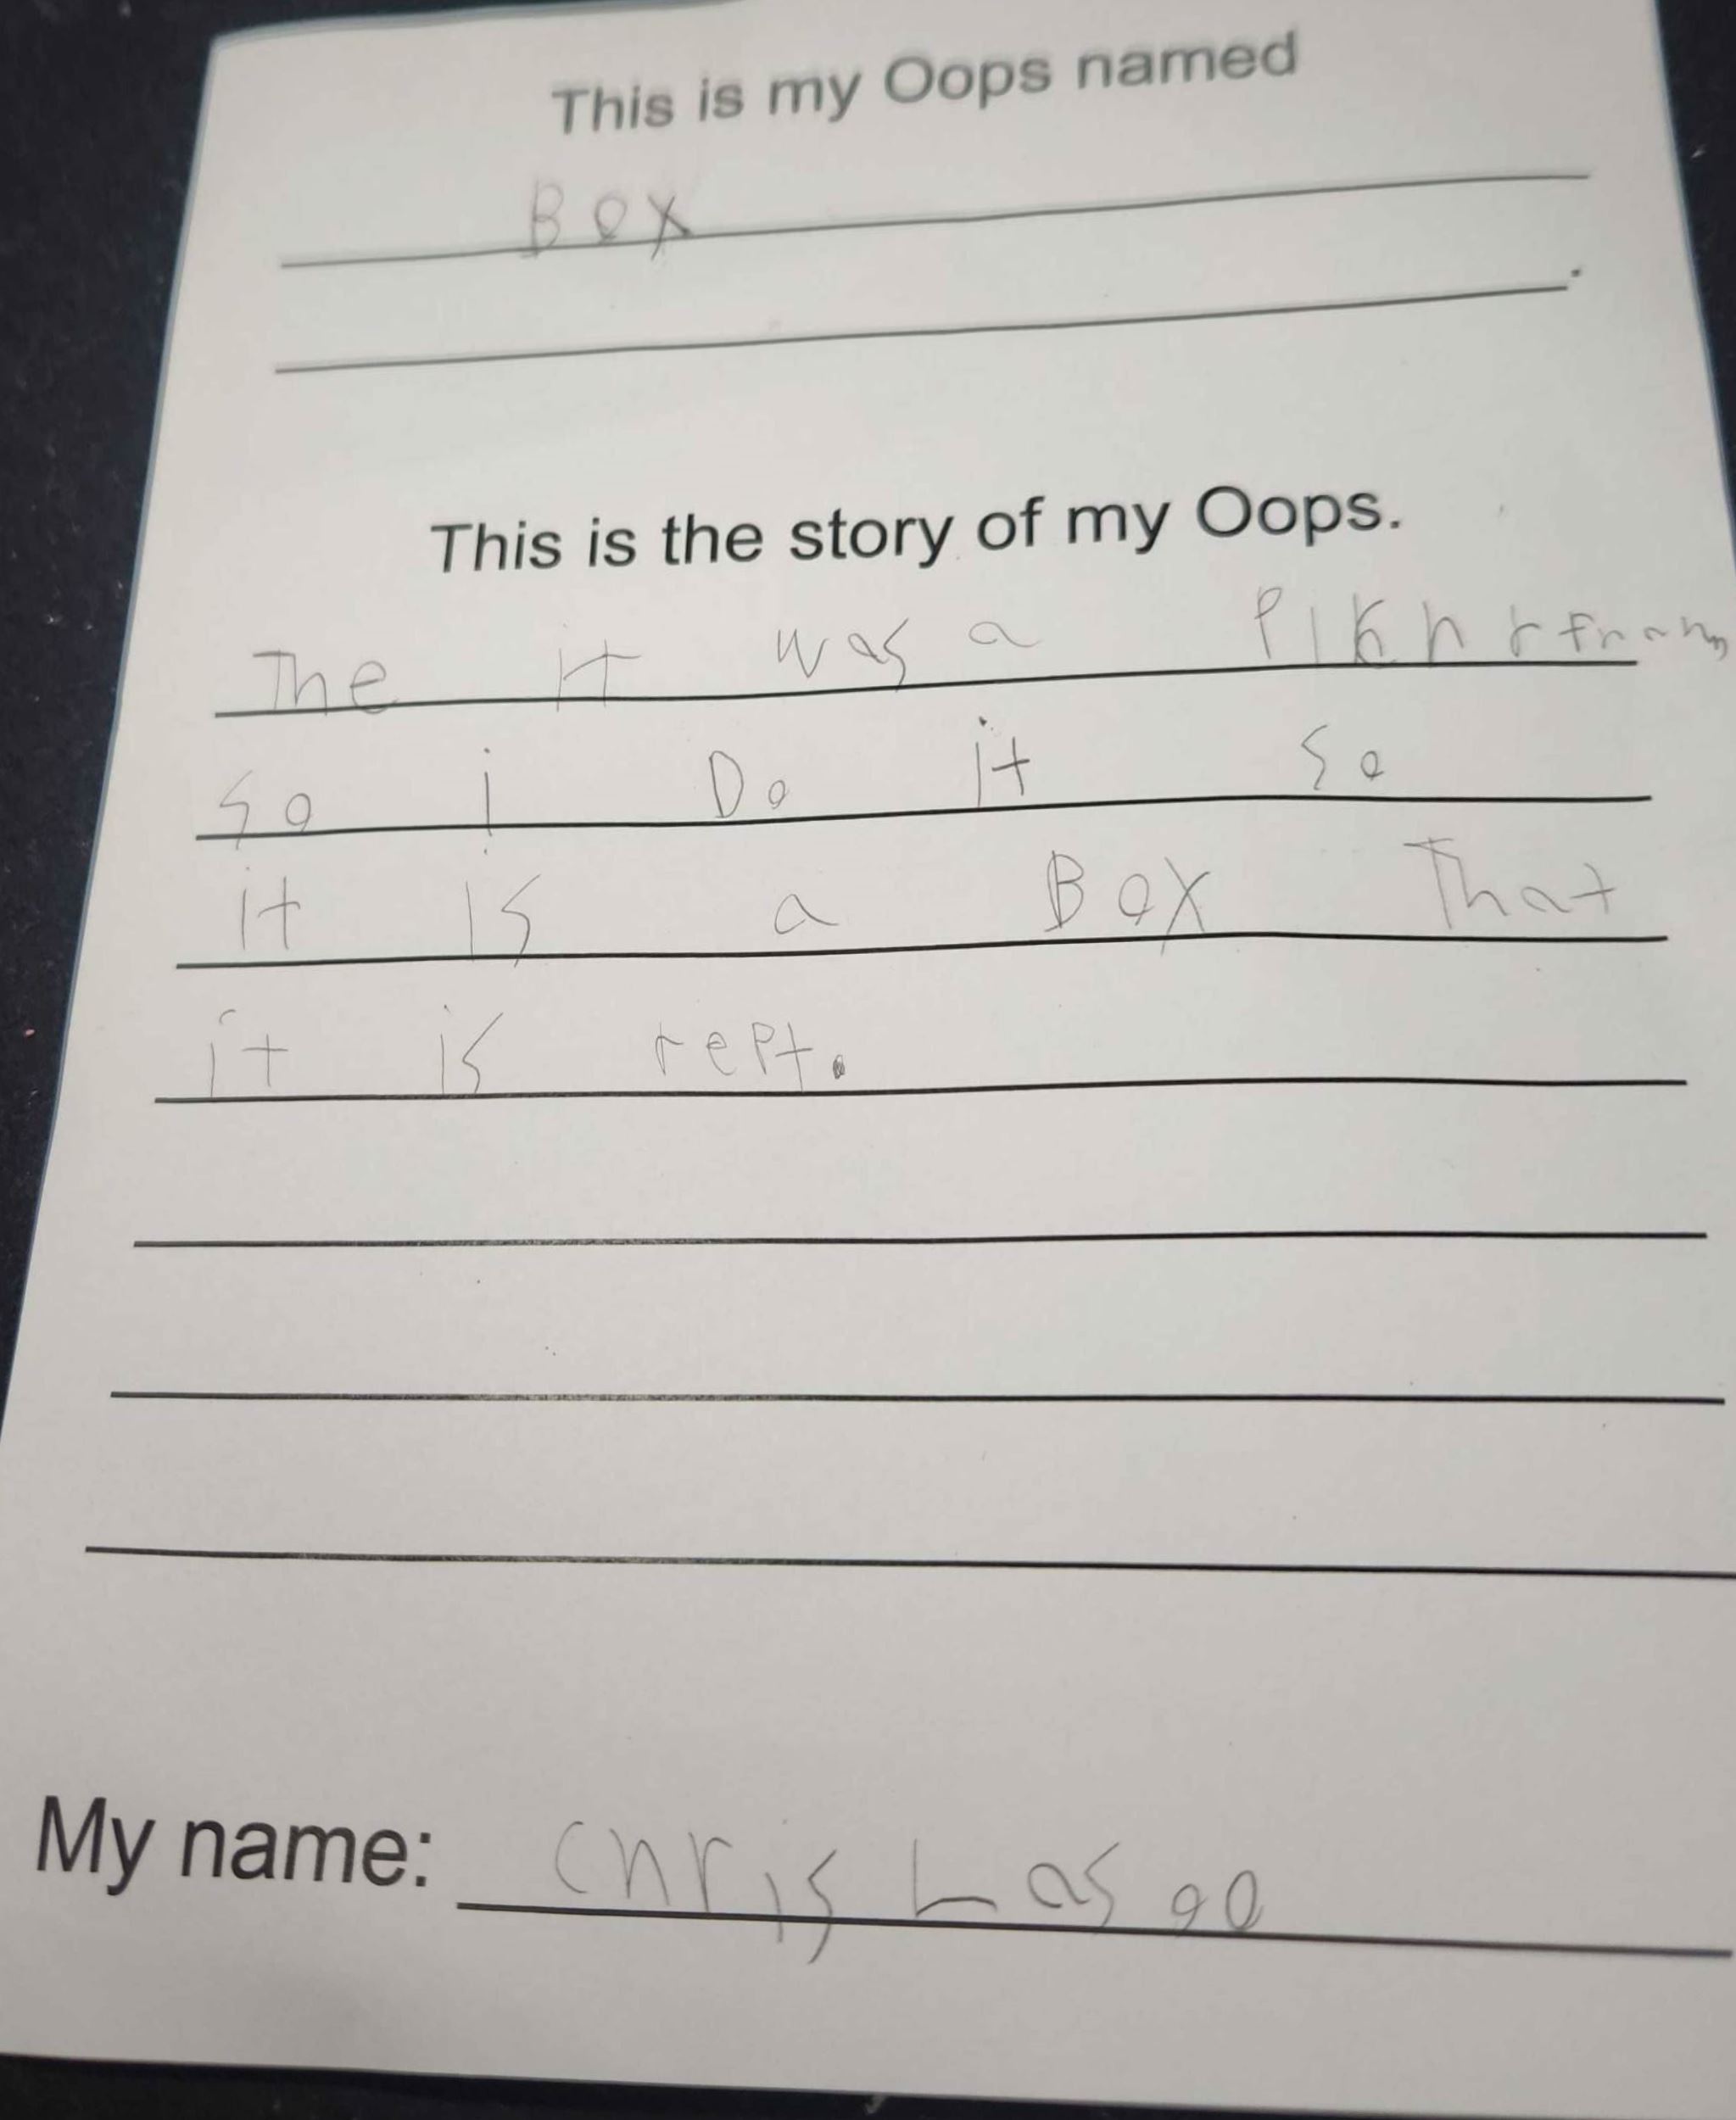 This is my Oops named
Box
.
This is the story of my Oops.
The it was a
so i Do it so
it is a Box That
it is rept.
My name: Chris Lasgo